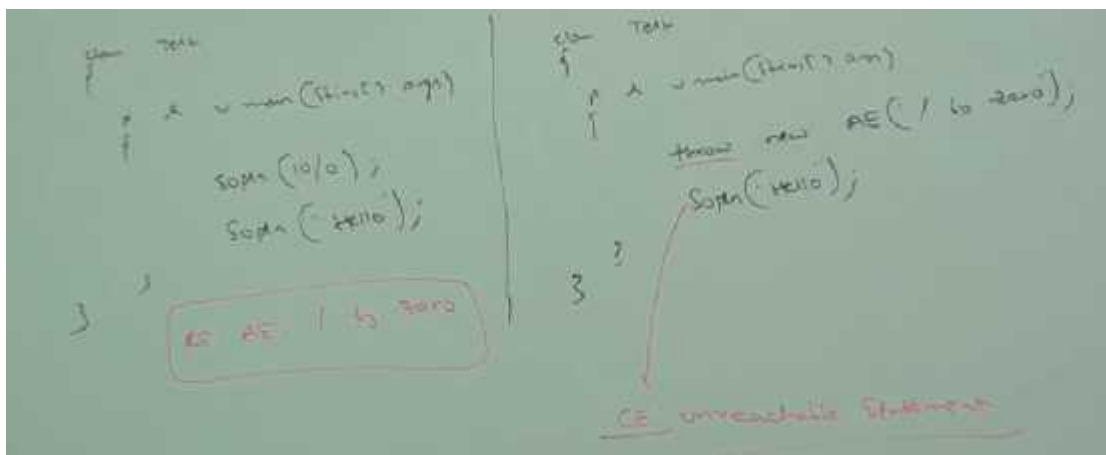 class Test
{
p s v main(String[] args)
{
Sopln(10/0);
Sopln("Hello");
}
}
RE AE / by zero
class Test
{
p s v main(String[] args)
{
throw new AE("/ by zero");
Sopln("Hello");
}
}
CE unreachable statement